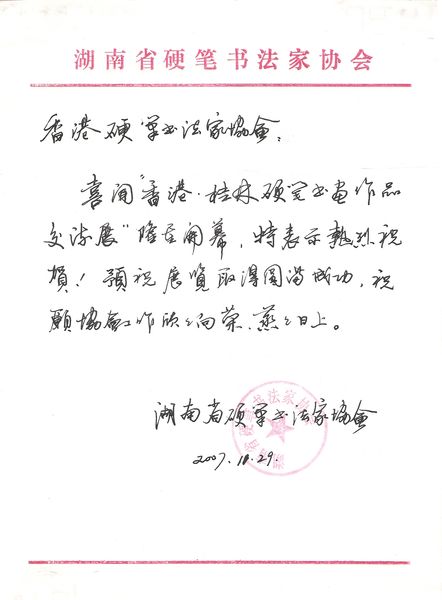 湖南省硬笔书法家协会
香港硬筆书法家協會：
喜闻“香港·桂林硬笔书画作品
交流展”隆重開幕，特表示熱烈祝
賀！預祝展覽取得圓滿成功，祝
願協會工作欣欣向荣、蒸蒸日上。
湖南省硬筆书法家協會
2007.10.29.